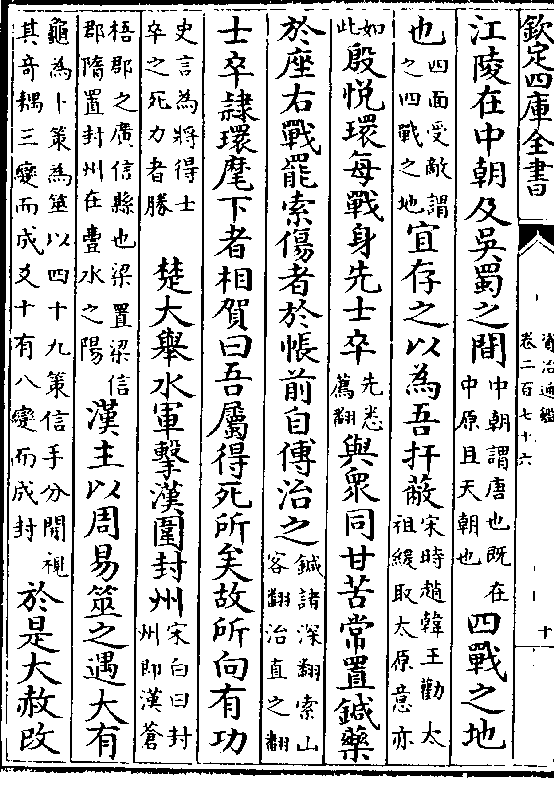 欽定四庫全書
資治通鑑
卷二百七十六
十
江陵在中朝及吳蜀之間中朝謂唐也既在中原且天朝也四戰之地
也四面受敵謂之四戰之地宜存之以為吾扞蔽宋時趙韓王勸太祖緩取太原意亦
如此殷悅環每戰身先士卒先悉薦翻與衆同甘苦常置鍼藥
於座右戰罷索傷者於帳前自傅治之鍼諸深翻索山客翻治直之翻
士卒隷環麾下者相賀曰吾屬得死所矣故所向有功
史言為將得士卒之死力者勝楚大舉水軍擊漢圍封州宋白曰封州即漢蒼
梧郡之廣信縣也梁置梁信郡隋置封州在豊水之陽漢主以周易筮之遇大有
龜為卜策為筮以四十九策信手分閒視其奇耦三變而成爻十有八變而成卦於是大赦改